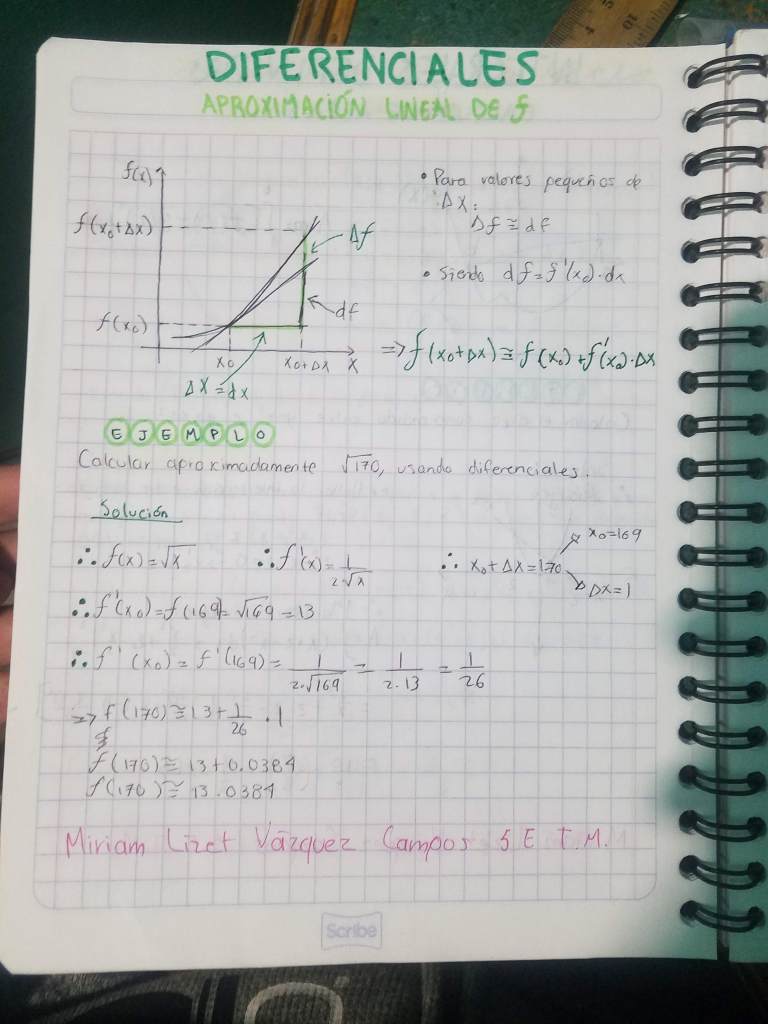 DIFERENCIALES
APROXIMACIÓN LINEAL DE f
f(x)
f(x₀+Δx)
f(x₀)
Δf
df
x₀
x₀+Δx
x
Δx=dx
• Para valores pequeños de
Δx:
Δf ≅ df
• Siendo df=f'(x₀)·dx
=> f(x₀+Δx) ≅ f(x₀)+f'(x₀)·Δx
EJEMPLO
Calcular aproximadamente √170, usando diferenciales.
Solución
∴ f(x)=√x ∴ f'(x)=1/2√x ∴ x₀+Δx=170 x₀=169
Δx=1
∴ f'(x₀)=f(169)=√169=13
∴ f'(x₀)= f'(169)= 1/2·√169 = 1/2·13 = 1/26
=> f(170)≅13+1/26 · 1
f(170)≅ 13+0.0384
f(170)≅ 13.0384
Miriam Lizet Vázquez Campos 5 E T.M.
Scribe